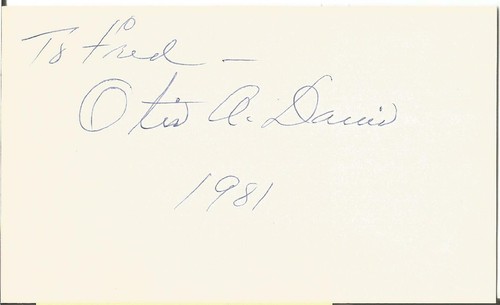 To Fred –
Otis A. Davis
1981